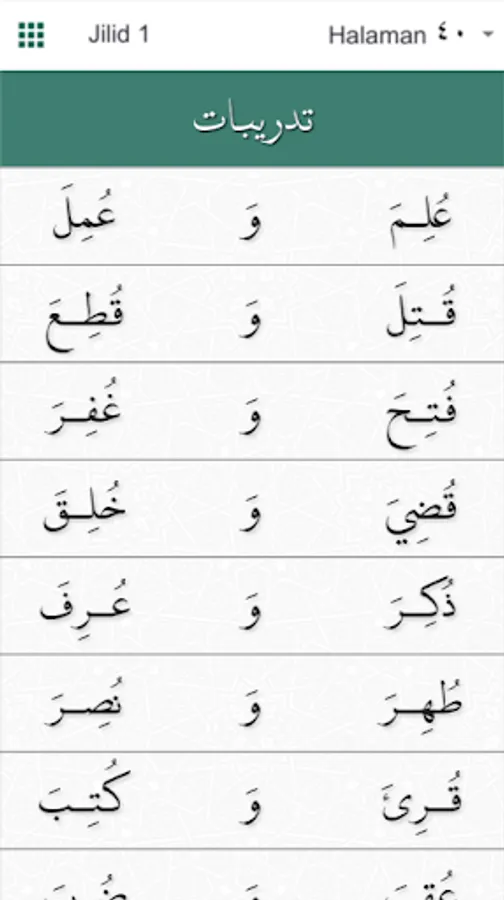 Jilid 1 Halaman ٤٠
تدريبات
عُلِمَ وَ عُمِلَ
قُتِلَ وَ قُطِعَ
فُتِحَ وَ غُفِرَ
قُضِيَ وَ خُلِقَ
ذُكِرَ وَ عُرِفَ
طُهِرَ وَ نُصِرَ
قُرِئَ وَ كُتِبَ